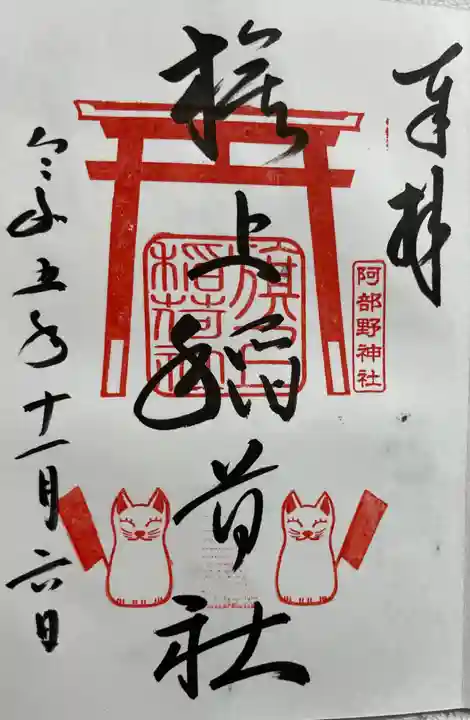 奉拝
阿部野神社
旗上稲荷社
令和五年十一月六日